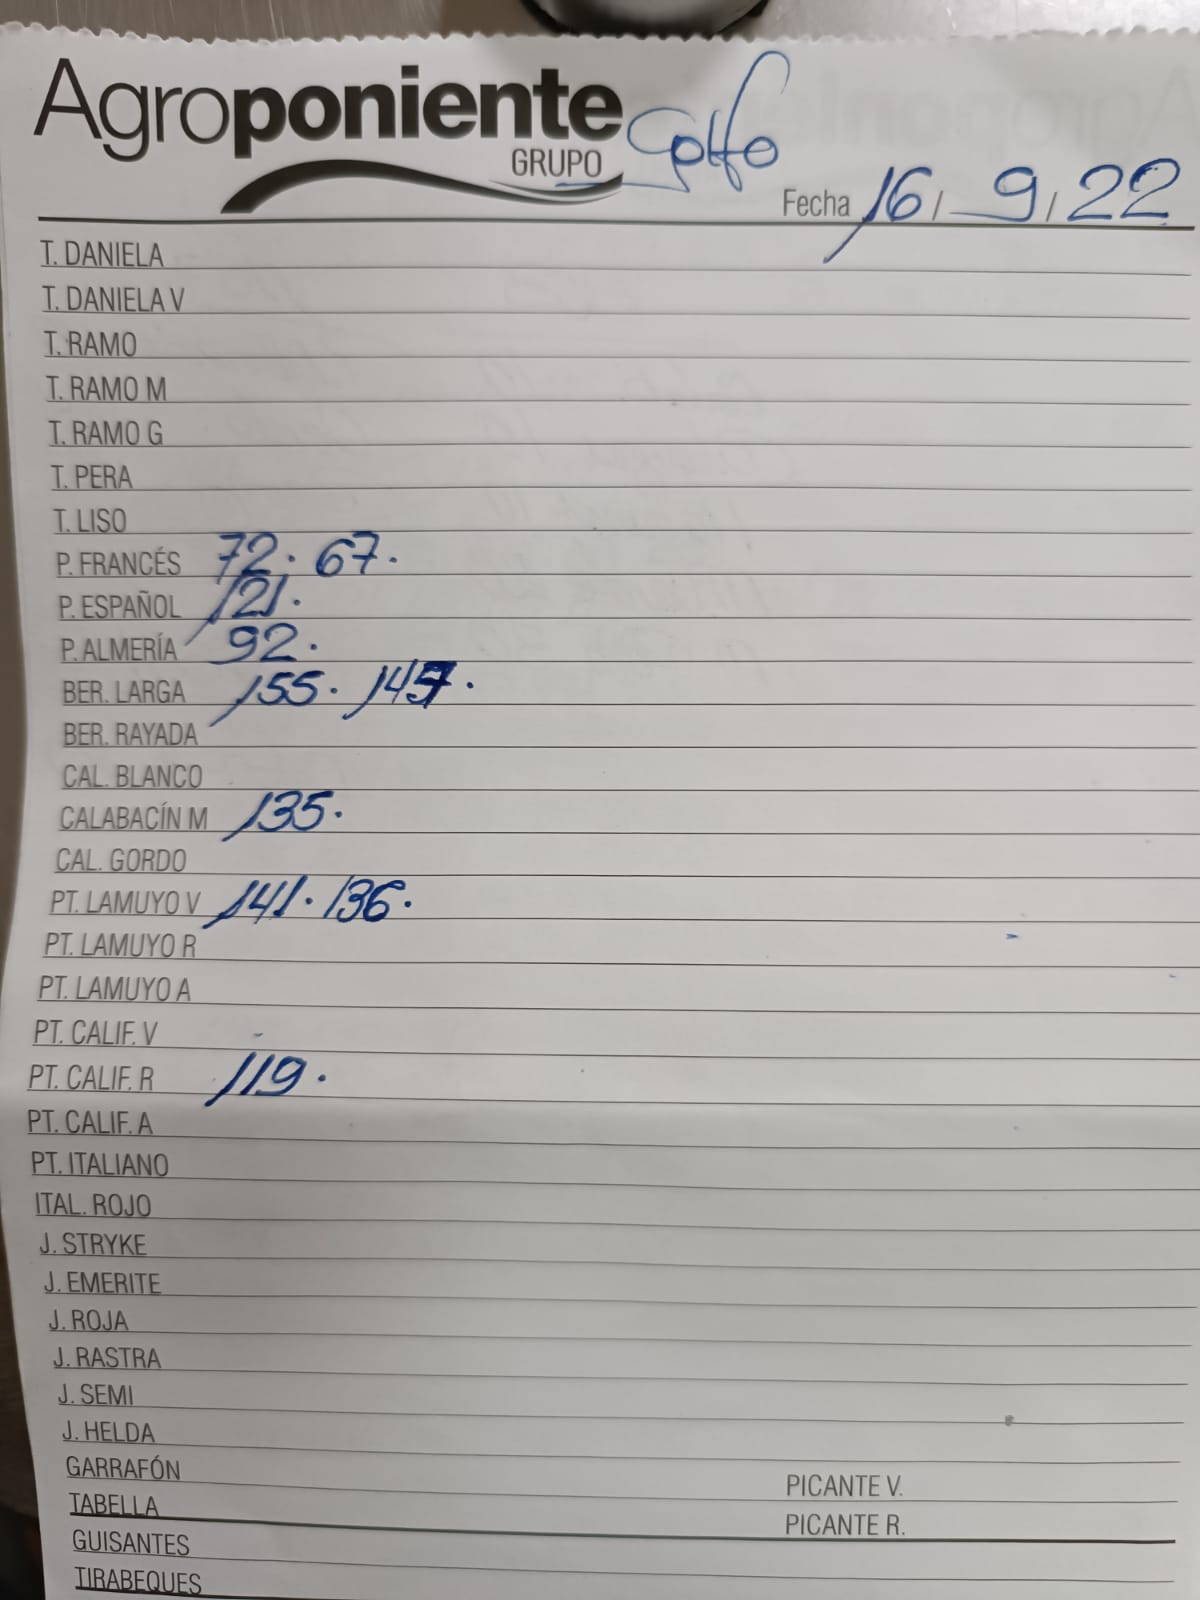 Agroponiente
GRUPO
Golfo
Fecha 16 / 9 / 22
T. DANIELA
T. DANIELA V
T. RAMO
T. RAMO M
T. RAMO G
T. PERA
T. LISO
P. FRANCÉS 72. 67.
P. ESPAÑOL 121.
P. ALMERÍA 92.
BER. LARGA 155. 147.
BER. RAYADA
CAL. BLANCO
CALABACÍN M 135.
CAL. GORDO
PT. LAMUYO V 141. 136.
PT. LAMUYO R
PT. LAMUYO A
PT. CALIF. V
PT. CALIF. R 119.
PT. CALIF. A
PT. ITALIANO
ITAL. ROJO
J. STRYKE
J. EMERITE
J. ROJA
J. RASTRA
J. SEMI
J. HELDA
GARRAFÓN PICANTE V.
TABELLA PICANTE R.
GUISANTES
TIRABEQUES